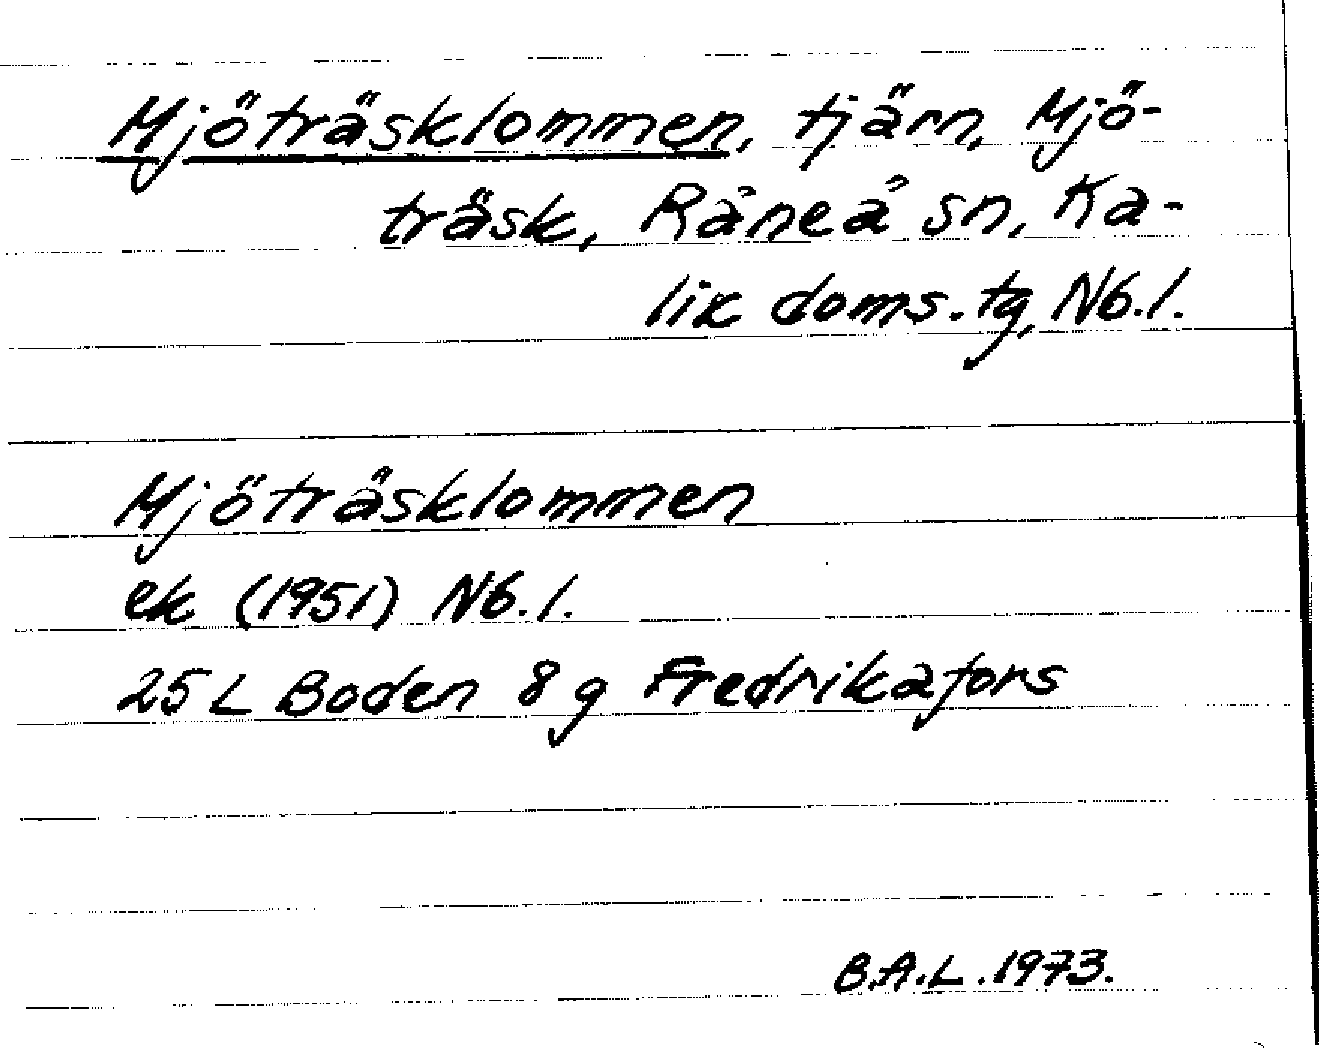 Mjöträsklommen, tjärn, Mjö-
träsk, Råneå sn, Ka-
lix doms.tg, Nb.l.
Mjöträsklommen
ek (1951) Nb.l.
25 L Boden 8 g Fredrikafors
B.A.L. 1973.